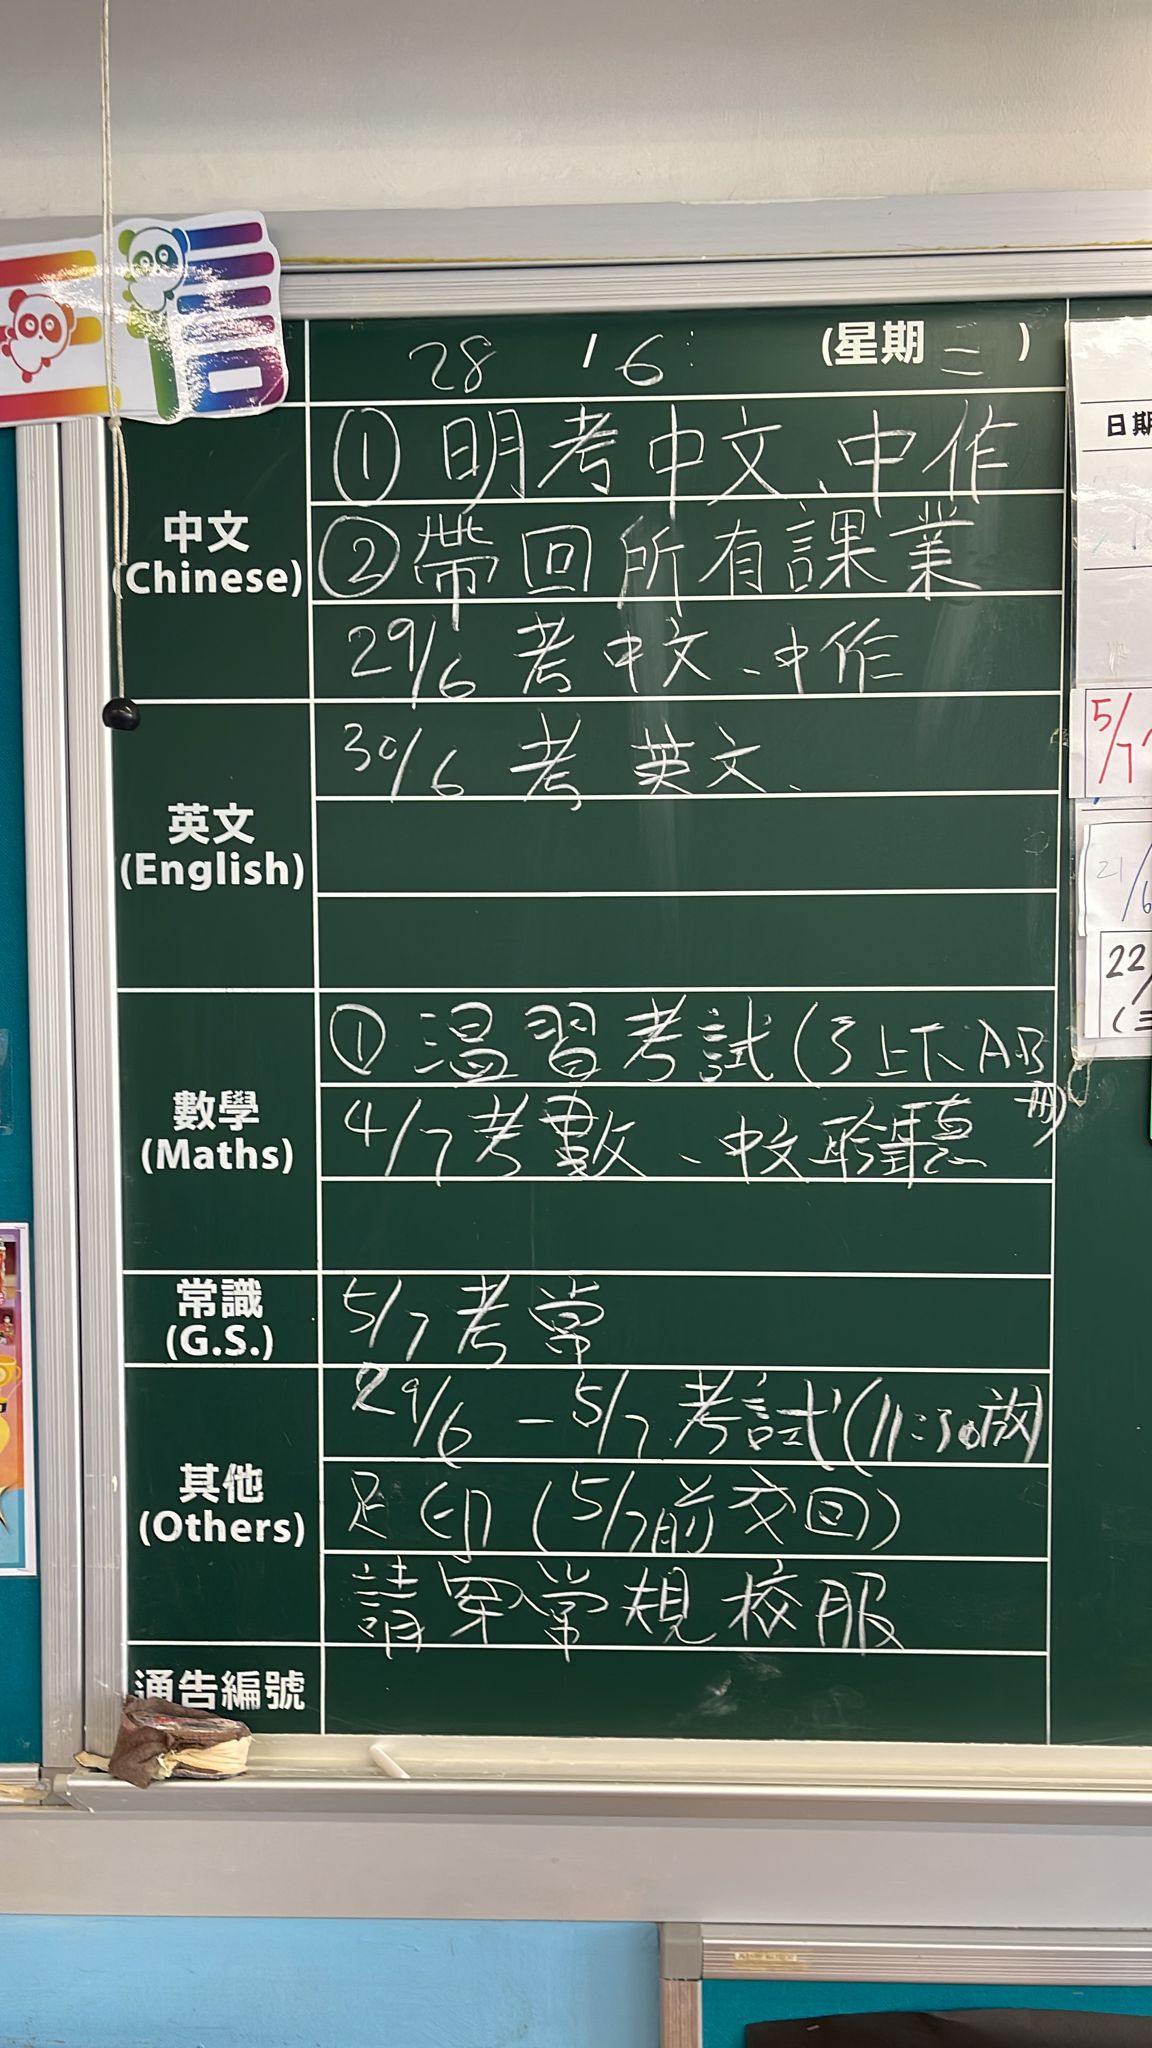 28 / 6 (星期二)
中文
(Chinese)
① 明考中文、中作
② 帶回所有課業
29/6 考中文、中作
英文
(English)
30/6 考英文、
數學
(Maths)
① 溫習考試(3上下AB冊)
4/7 考數、中文聆聽
常識
(G.S.)
5/7 考常
其他
(Others)
29/6 - 5/7 考試(11:30放)
足印(5/7前交回)
請穿常規校服
通告編號
日期
5/7
21/6
22/
(三